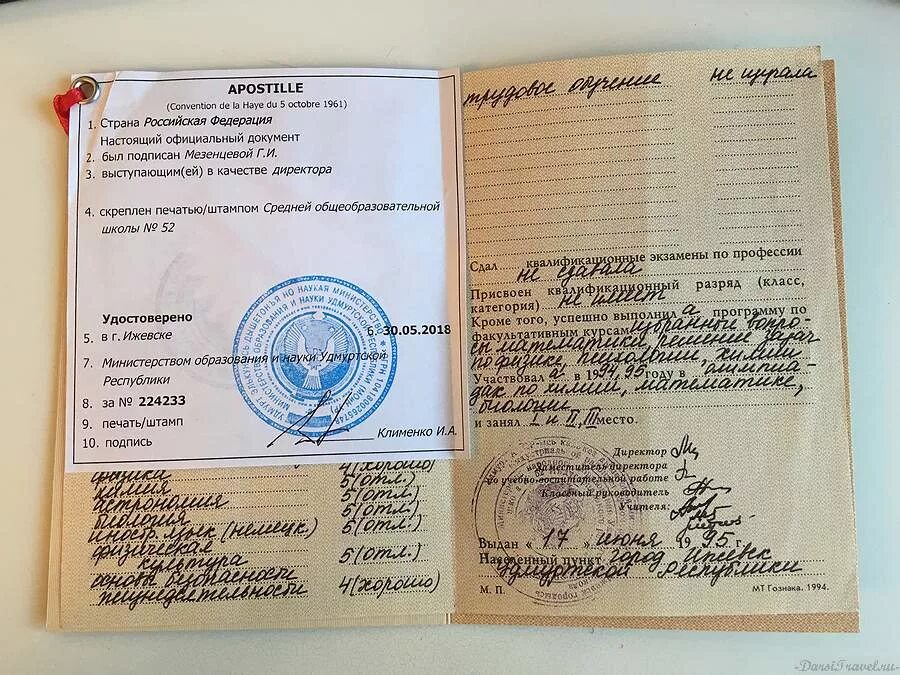 APOSTILLE
(Convention de la Haye du 5 octobre 1961)
1. Страна Российская Федерация
Настоящий официальный документ
2. был подписан Мезенцевой Г.И.
3. выступающим(ей) в качестве директора
4. скреплен печатью/штампом Средней общеобразовательной
школы № 52
Удостоверено
5. в г. Ижевске
6. 30.05.2018
7. Министерством образования и науки Удмуртской
Республики
8. за № 224233
9. печать/штамп
10. подпись
Клименко И.А.
физика 4(хорошо)
химия 5(отл.)
астрономия 5(отл.)
биология 5(отл.)
иностр. язык (немецк.) 5(отл.)
физическая
культура 5(отл.)
основы безопасности
жизнедеятельности 4(хорошо)
трудовое обучение не изучала
Сдал квалификационные экзамены по профессии
не сдавала
Присвоен квалификационный разряд (класс,
категория) не имеет
Кроме того, успешно выполнил а программу по
факультативным курсам избранные вопро-
сы математики решение задач
по физике, психологии, химии
Участвовал а в 1994,95 году в олимпиа-
дах по химии, математике,
биологии
и занял I и II, III место.
Директор
Заместитель директора
по учебно-воспитательной работе
Классный руководитель
Учителя:
Выдан «17» июня 1995 г.
Населенный пункт город Ижевск
Удмуртской Республики
М. П.
МТ Гознака. 1994.
-DarsiTravel.ru-